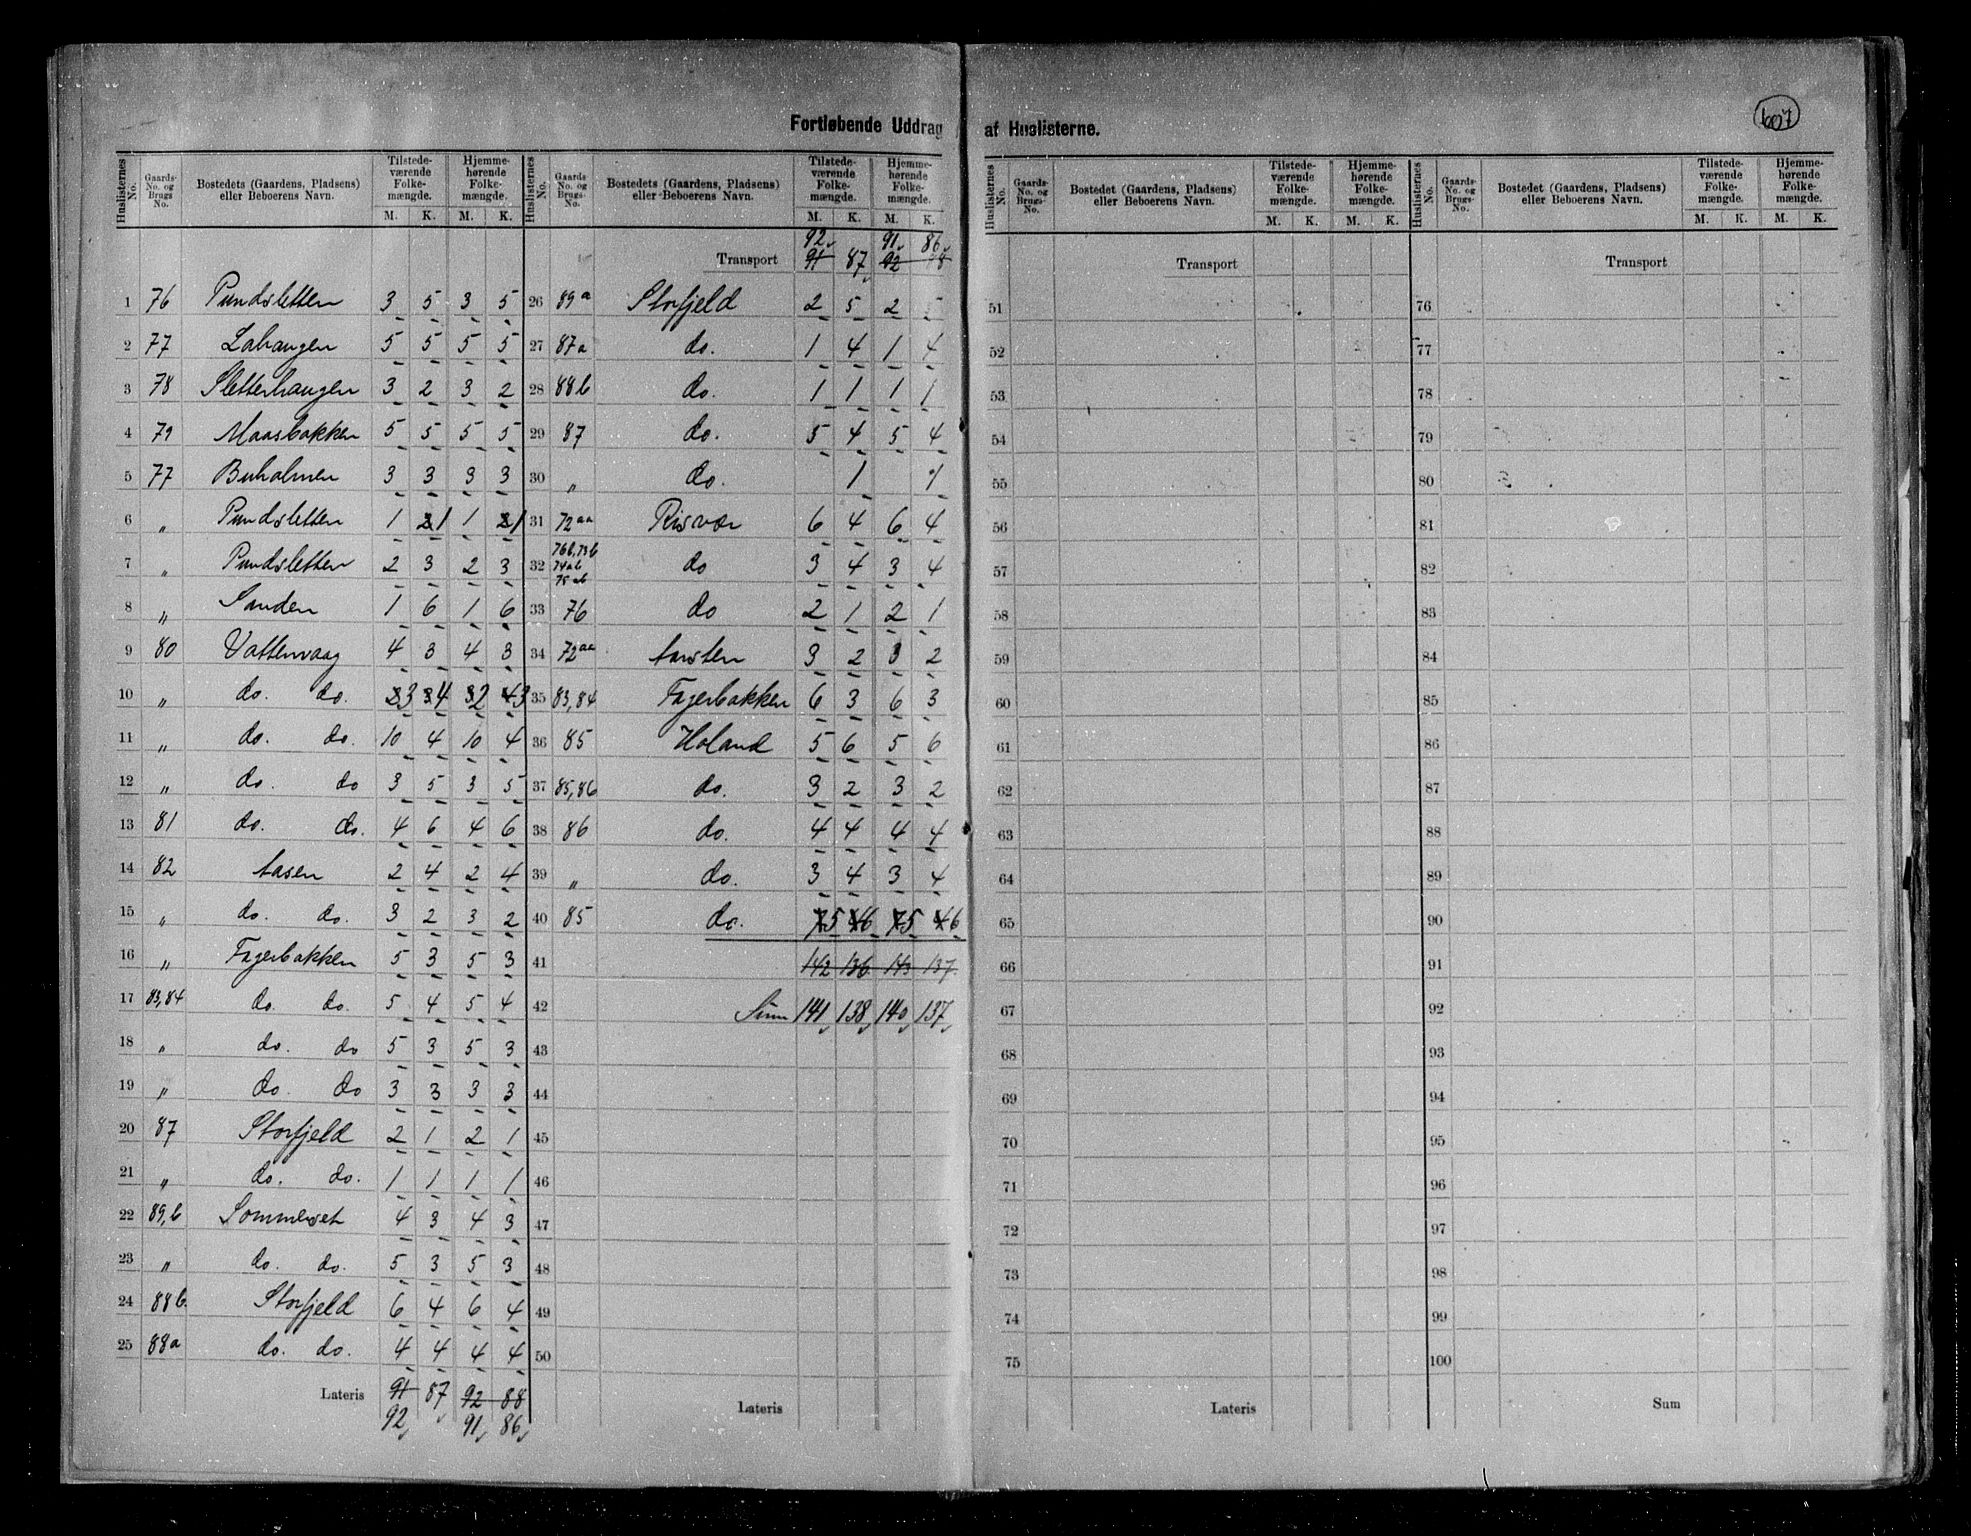 607
Fortløbende Uddrag af Huslisterne.
Huslisternes No. | Gaards-No. og Brugs No. | Bostedets (Gaardens, Pladsens) eller Beboerens Navn. | Tilstedeværende Folkemængde. M. K. | Hjemmehørende Folkemængde. M. K.
1 76 Pundsletten 3 5 3 5
2 77 Lahaugen 5 5 5 5
3 78 Sletterhaugen 3 2 3 2
4 79 Maasbakken 5 5 5 5
5 77 Buholmen 3 3 3 3
6 " Pundsletten 1 1 1 1
7 " Pundsletten 2 3 2 3
8 " Sanden 1 6 1 6
9 80 Vattenvaag 4 3 4 3
10 " do. do. 3 4 2 3
11 " do. do. 10 4 10 4
12 " do. do 3 5 3 5
13 81 do. do. 4 6 4 6
14 82 Aasen 2 4 2 4
15 " do. do. 3 2 3 2
16 " Fagerbakken 5 3 5 3
17 83,84 do. do. 5 4 5 4
18 " do. do 5 3 5 3
19 " do. do 3 3 3 3
20 87 Storfjeld 2 1 2 1
21 " do. do. 1 1 1 1
22 89,b Sommerset 4 3 4 3
23 " do. do. 5 3 5 3
24 88b. Storfjeld 6 4 6 4
25 88a do. do. 4 4 4 4
Lateris 91 87 92 88
92 91 86
Huslisternes No. | Gaards No. og Brugs- No. | Bostedets (Gaardens, Pladsens) eller Beboerens Navn. | Tilstedeværende Folkemængde. M. K. | Hjemmehørende Folkemængde. M. K.
92 91 86
Transport 91 87 92 88
26 89a Storfjeld 2 5 2 5
27 87a do. 1 4 1 4
28 88b do. 1 1 1 1
29 87 do. 5 4 5 4
30 " do. 1 1
31 72aa Risvær 6 4 6 4
32 76b,73b 74ab 75ab do 3 4 3 4
33 76 do 2 1 2 1
34 72aa Aarsten 3 2 3 2
35 83,84 Fagerbakken 6 3 6 3
36 85 Holand 5 6 5 6
37 85,86 do. 3 2 3 2
38 86 do. 4 4 4 4
39 " do. 3 4 3 4
40 85 do. 5 6 5 6
41 142 136 143 137
42 Sum 141 138 140 137
43
44
45
46
47
48
49
50
Lateris
Huslisternes No. | Gaards-No. og Brugs No. | Bostedet (Gaardens, Pladsens) eller Beboerens Navn. | Tilstedeværende Folkemængde. M. K. | Hjemmehørende Folkemængde. M. K.
Transport
51
52
53
54
55
56
57
58
59
60
61
62
63
64
65
66
67
68
69
70
71
72
73
74
75
Lateris
Huslisternes No. | Gaards-No. og Brugs-No. | Bostedet (Gaardens, Pladsens) eller Beboerens Navn. | Tilstedeværende Folkemængde. M. K. | Hjemmehørende Folkemængde. M. K.
Transport
76
77
78
79
80
81
82
83
84
85
86
87
88
89
90
91
92
93
94
95
96
97
98
99
100
Sum